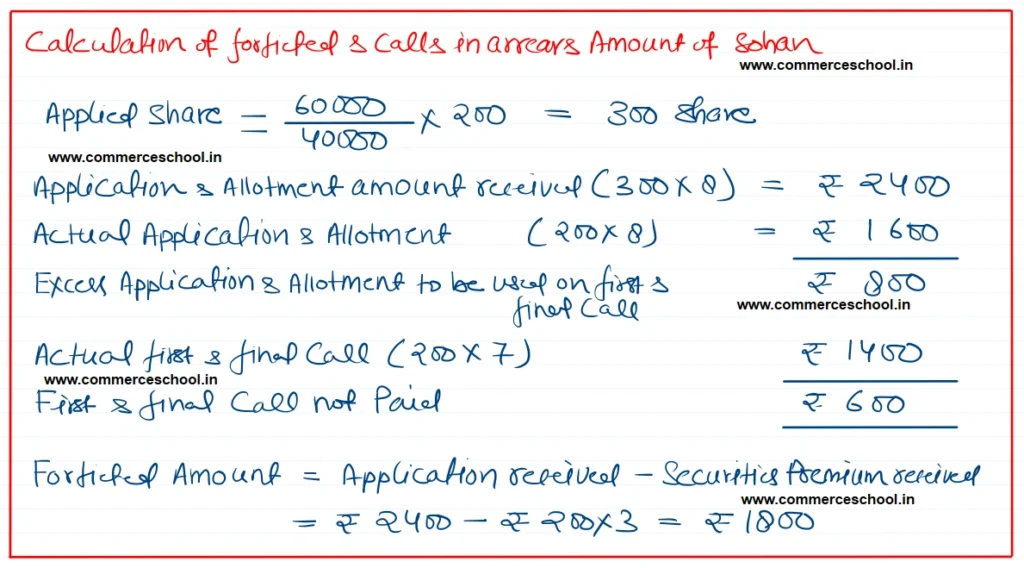 Calculation of forficted & Calls in arrears Amount of Sohan
www.commerceschool.in
Applied Share = 60000/40000 × 200 = 300 Share
www.commerceschool.in
Application & Allotment amount received (300×8) = ₹ 2400
Actual Application & Allotment (200×8) = ₹ 1600
Excess Application & Allotment to be used on first & final Call ₹ 800
www.commerceschool.in
Actual first & final Call (200×7) ₹ 1400
www.commerceschool.in
First & final Call not Paid ₹ 600
Forficted Amount = Application received – Securities Premium received
www.commerceschool.in
= ₹ 2400 – ₹ 200×3 = ₹ 1800